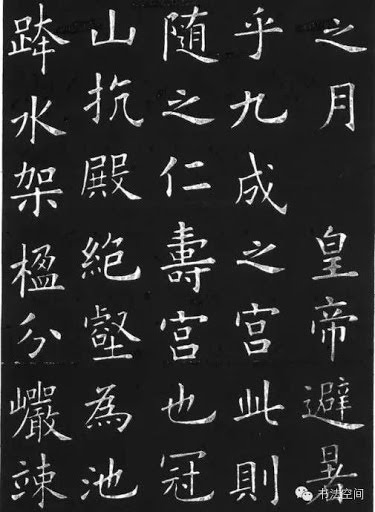 之月 皇帝避暑
乎九成之宫此則
随之仁壽宫也冠
山抗殿絶壑為池
跨水架楹分巖竦
书法空间